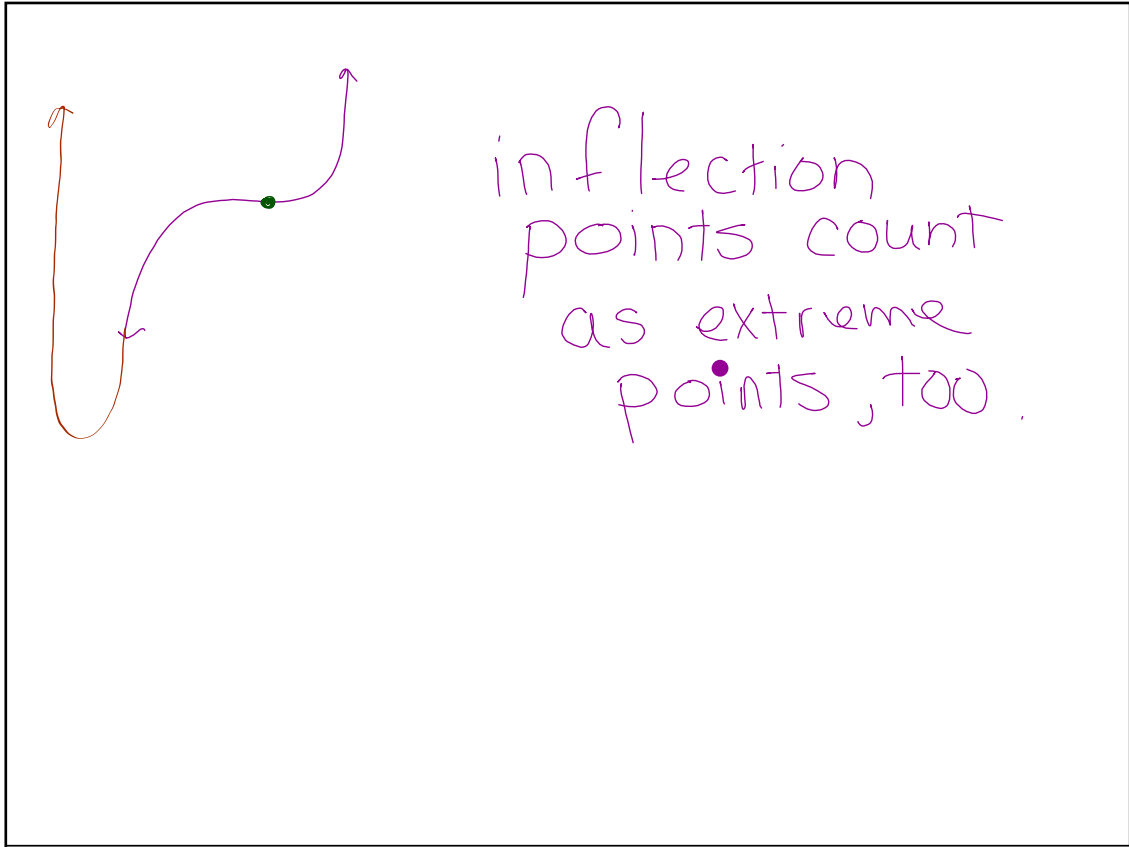 inflection
points count
as extreme
points, too.